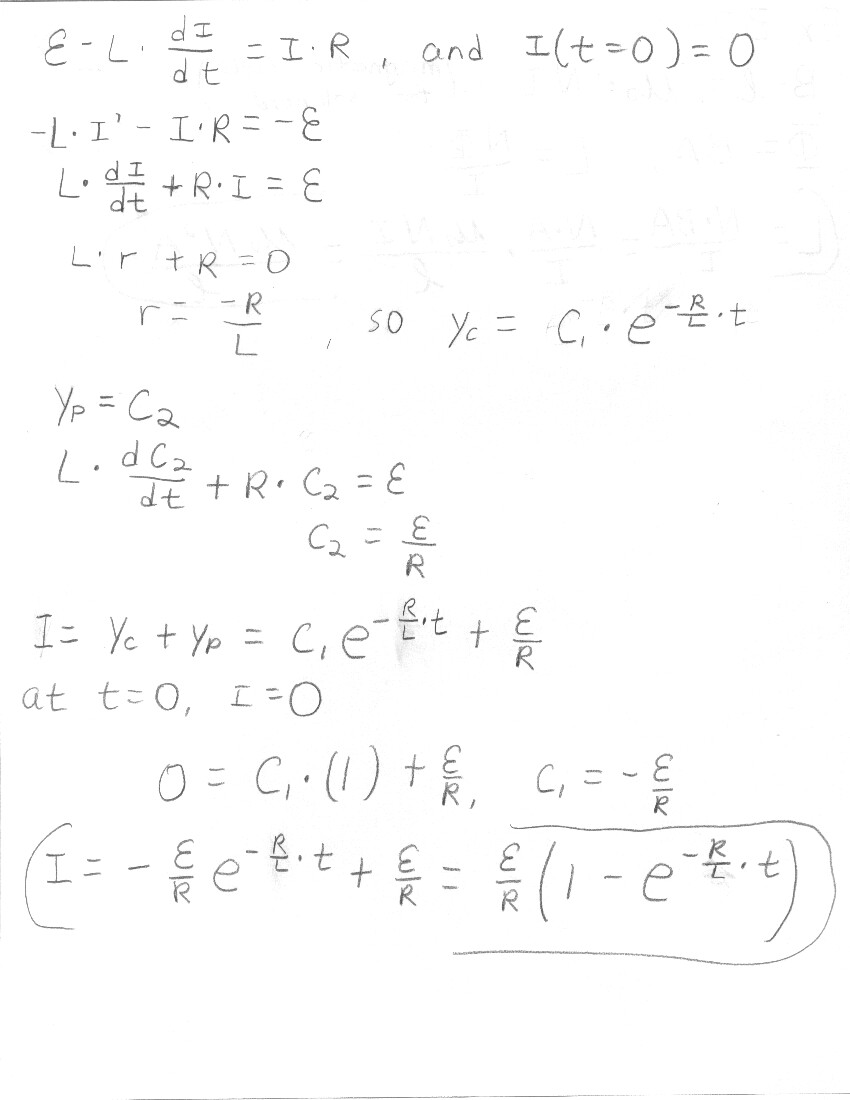 ε - L · dI/dt = I · R , and I(t=0) = 0
-L · I' - I · R = -ε
L · dI/dt + R · I = ε
L · r + R = 0
r = -R/L , so y_c = C₁ · e^(-R/L · t)
y_p = C₂
L · dC₂/dt + R · C₂ = ε
C₂ = ε/R
I = y_c + y_p = C₁ e^(-R/L · t) + ε/R
at t=0, I=0
0 = C₁ · (1) + ε/R, C₁ = -ε/R
I = - ε/R e^(-R/L · t) + ε/R = ε/R (1 - e^(-R/L · t))